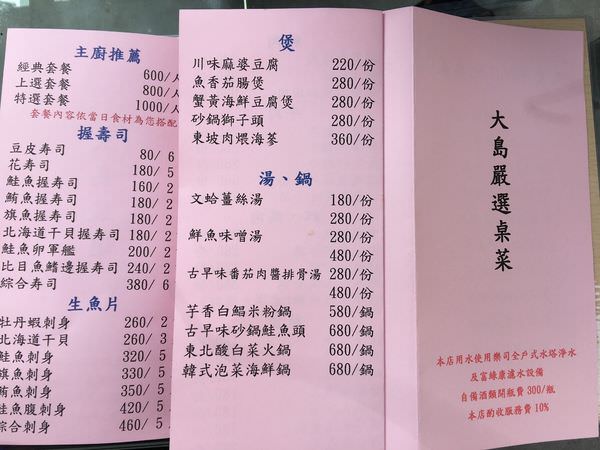 主廚推薦
經典套餐 600/人
上選套餐 800/人
特選套餐 1000/人
套餐內容依當日食材為您搭配
握壽司
豆皮寿司 80/ 6
花寿司 180/ 5
鮭魚握寿司 160/ 2
鮪魚握寿司 180/ 2
旗魚握寿司 180/ 2
北海道干貝握寿司 180/ 2
鮭魚卵軍艦 200/ 2
比目魚鰭邊握寿司 240/ 2
綜合寿司 380/ 6
生魚片
牡丹蝦刺身 260/ 2
北海道干貝 260/ 3
鮭魚刺身 320/ 5
旗魚刺身 330/ 5
鮪魚刺身 350/ 5
鮭魚腹刺身 420/ 5
綜合刺身 460/ 5
煲
川味麻婆豆腐 220/份
魚香茄腸煲 280/份
蟹黃海鮮豆腐煲 280/份
砂鍋獅子頭 280/份
東坡肉煨海蔘 360/份
湯、鍋
文蛤薑絲湯 180/份
280/份
鮮魚味噌湯 280/份
480/份
古早味番茄肉醬排骨湯 280/份
480/份
芋香白鯧米粉鍋 580/鍋
古早味砂鍋鮭魚頭 680/鍋
東北酸白菜火鍋 680/鍋
韓式泡菜海鮮鍋 680/鍋
大島嚴選桌菜
本店用水使用樂司全戶式水塔淨水
及富綠康濾水設備
自備酒類開瓶費 300/瓶
本店酌收服務費 10%